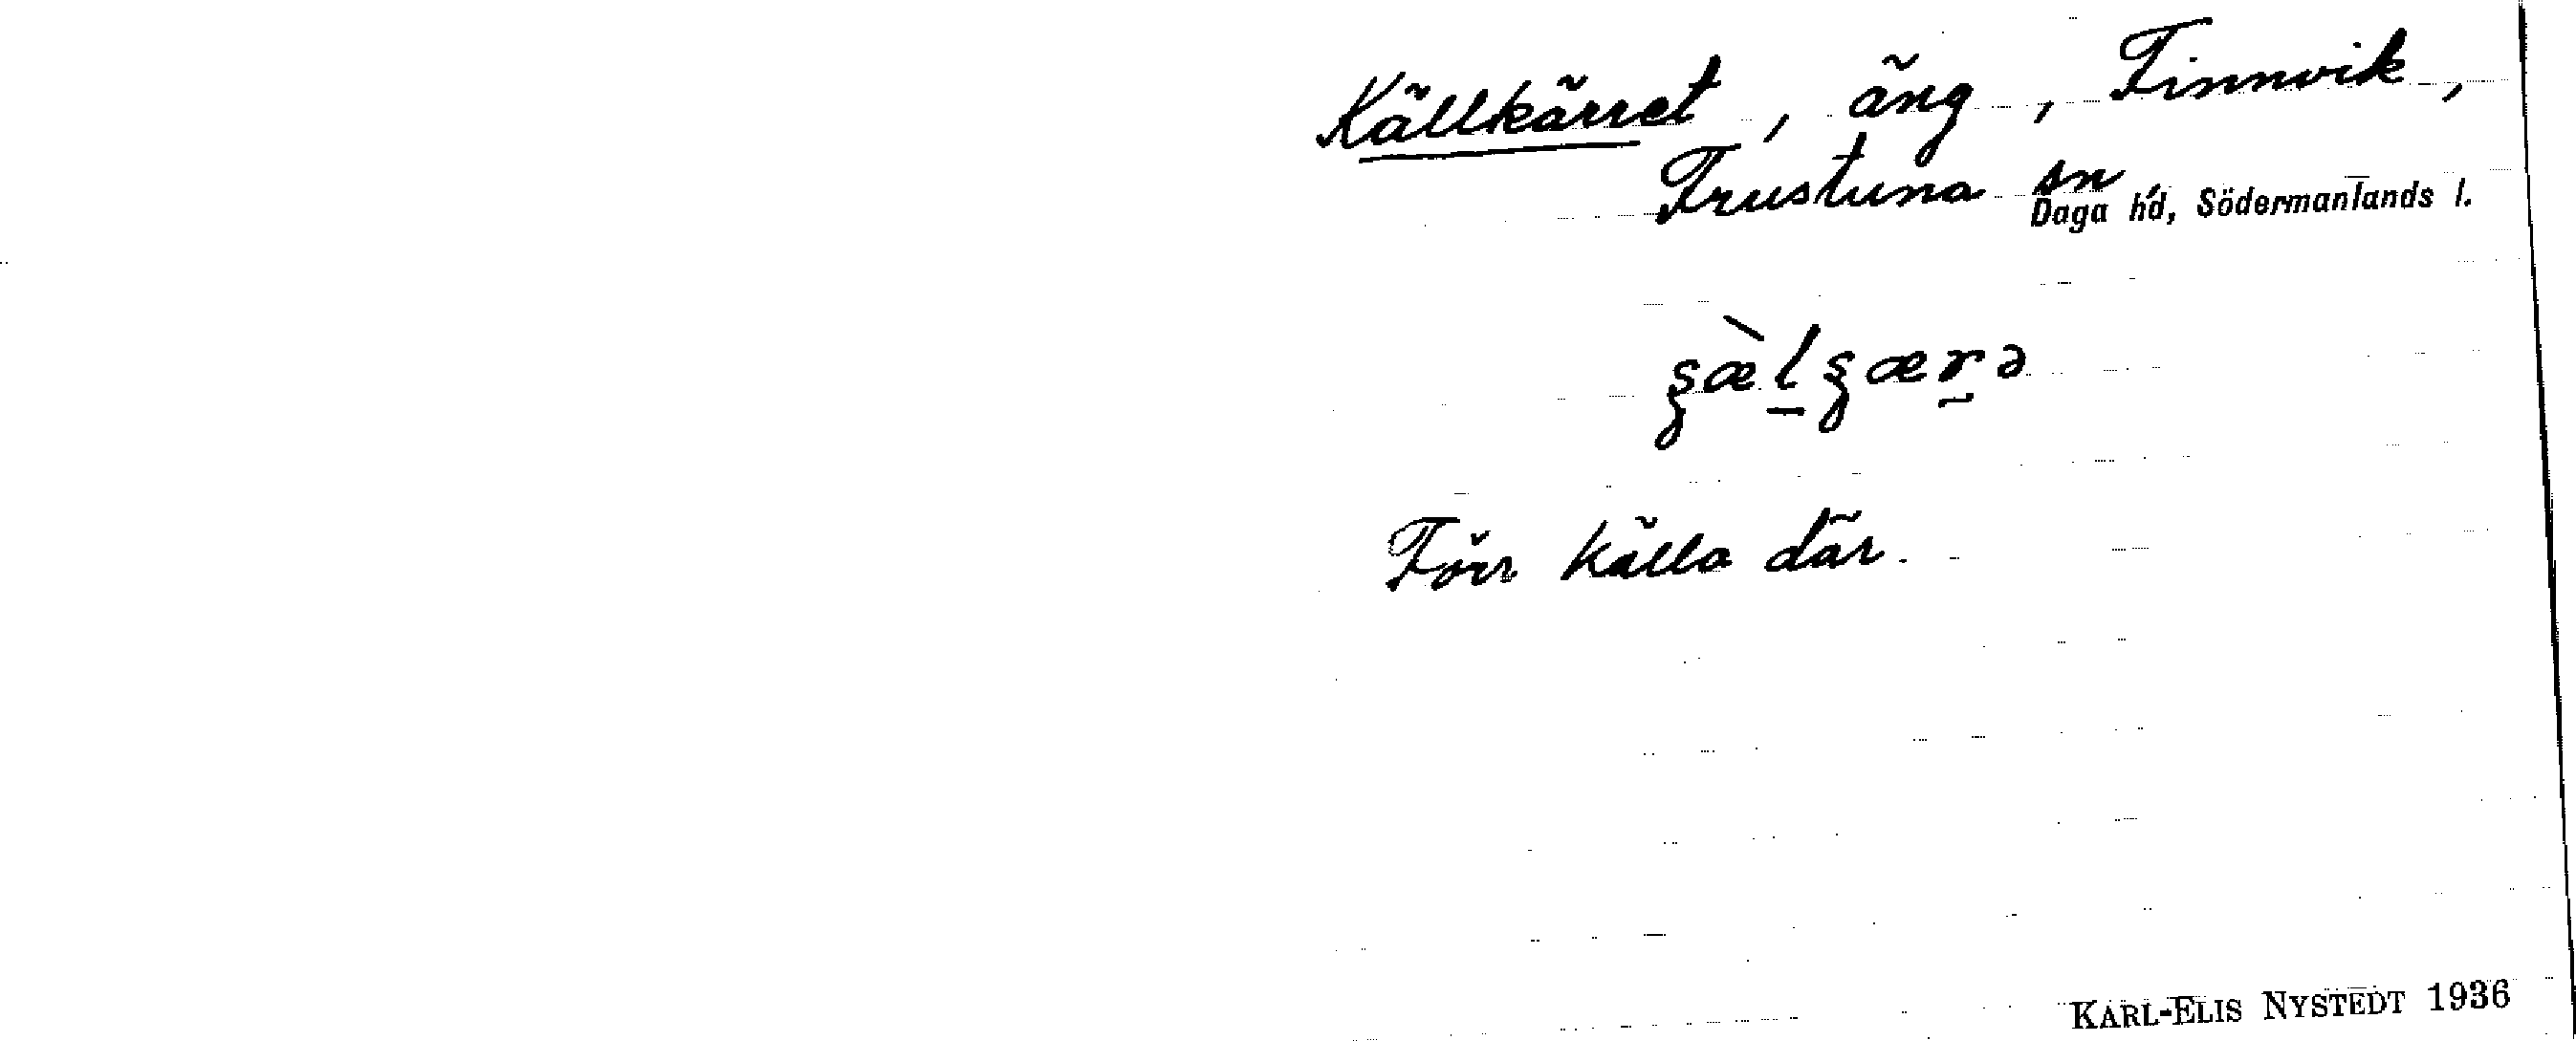 Källkärret, äng, Finnvik,
Frustuna sn,
Daga hd, Södermanlands l.
Förr källa där.
KARL-ELIS NYSTEDT 1936